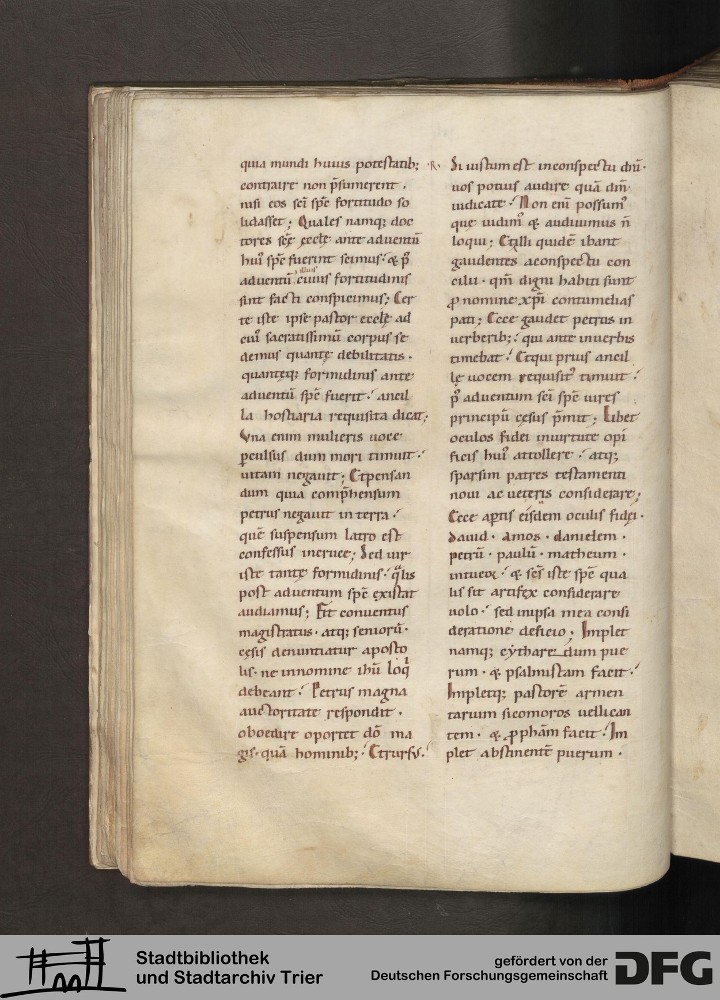 quia mundi huius potestatib;
contraire non p̄sumerent .
nisi eos sc̄i sp̄c fortitudo so
lidasset ; Quales namq; doc
tores sc̄ę ęcclę ante aduentū
hui᷒ sp̄c fuerint scimus . & p᷒
aduentū illius cuius fortitudinis
sint facti conspicimus ; Cer
te iste ipse pastor ęcclę ad
cui᷒ sacratissimū corpus se
demus quantę debilitatis .
quantęq; formidinis ante
aduentū sp̄c fuerit . ancil
la hostiaria requisita dicat ;
Vna enim mulieris uoce
ꝑculsus dum mori timuit .
uitam negauit ; Et pensan
dum quia comp̄hensum
petrus negauit in terra .
quē suspensum latro est
confessus in cruce ; Sed uir
iste tantę formidinis . qͣlis
post aduentum sp̄c existat
audiamus ; Fit conuentus
magistratus . atq; seniorū .
cęsis denuntiatur aposto
lis . ne in nomine ih̄u loqͥ
debeant . Petrus magna
auctoritate respondit .
oboedire oportet dō ma
gis . quā hominib; . Et rursū .
R . Si uistum est in conspectu dn̄i .
uos potius audire quā dm̄
iudicate . Non eni᷒ possum᷒
que uidim᷒ & audiuimus n̄
loqui ; Et illi quidē ibant
gaudentes a conspectu con
cilii . qm̄ digni habiti sunt
ꝓ nomine xp̄i contumelias
pati ; Ecce gaudet petrus in
uerberib; . qui ante in uerbis
timebat . Et qui prius ancil
lę uocem requisit᷒ timuit .
p᷒ aduentum sc̄i sp̄c uires
principū cęsus p̄mit ; Libet
oculos fidei in uirtute opi
ficis hui᷒ attollere . atq;
sparsim patres testamenti
noui ac ueteris considerare ;
Ecce aꝑtis eisdem oculis fidei .
dauid . amos . danielem .
petrū . paulū . matheum .
intueor . & sc̄s iste sp̄c qua
lis sit artifex considerare
uolo . sed in ipsa mea consi
deratione deficio ; Implet
namq; cytharedum pue
rum . & psalmistam facit .
Impletq; pastorē armen
tarium sicomoros uellican
tem . & ꝓpham̄ facit . Im
plet abstinentē puerum .
Stadtbibliothek
und Stadtarchiv Trier
gefördert von der
Deutschen Forschungsgemeinschaft
DFG